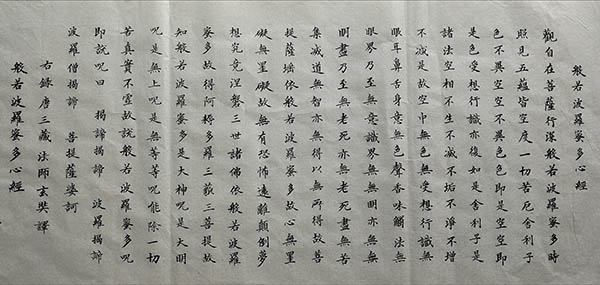 般若波羅蜜多心經
觀自在菩薩行深般若波羅蜜多時
照見五蘊皆空度一切苦厄舍利子
色不異空空不異色色即是空空即
是色受想行識亦復如是舍利子是
諸法空相不生不滅不垢不淨不增
不減是故空中無色無受想行識無
眼耳鼻舌身意無色聲香味觸法無
眼界乃至無意識界無無明亦無無
明盡乃至無老死亦無老死盡無苦
集滅道無智亦無得以無所得故菩
提薩埵依般若波羅蜜多故心無罣
礙無罣礙故無有恐怖遠離顛倒夢
想究竟涅槃三世諸佛依般若波羅
蜜多故得阿耨多羅三藐三菩提故
知般若波羅蜜多是大神呪是大明
呪是無上呪是無等等呪能除一切
苦真實不虛故說般若波羅蜜多呪
即說呪曰 揭諦揭諦 波羅揭諦
波羅僧揭諦 菩提薩婆訶
右錄唐三藏法師玄奘譯
般若波羅蜜多心經